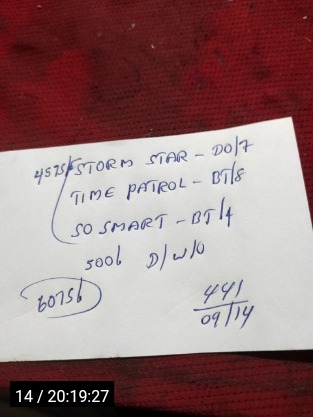 4575/- STORM STAR - DO/7
TIME PATROL - BT/8
SO SMART - BT/4
5006 D/W/O
60756
441
09/14
14 / 20:19:27